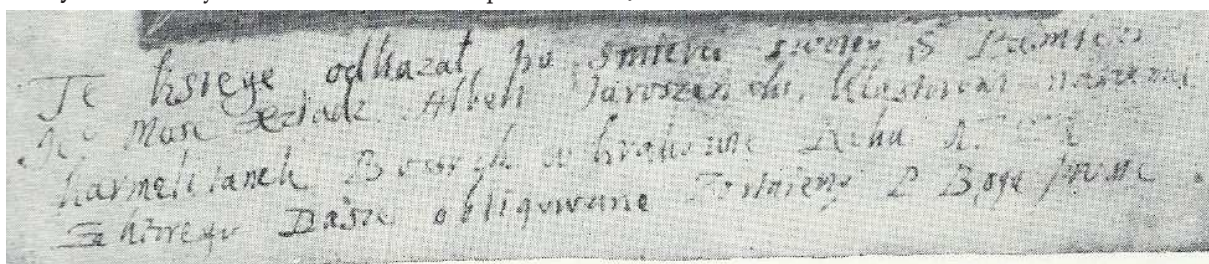 Tę księgę odkazał po śmierci swoiey S Pamieci
Je° Mosc Xsiądz Albert Jaroszenski, Klastorowi naszemu
karmelitanek Bossych w krakowie Roku
Za ktorego Dusze obligowane iestesmy P Boga prosic.